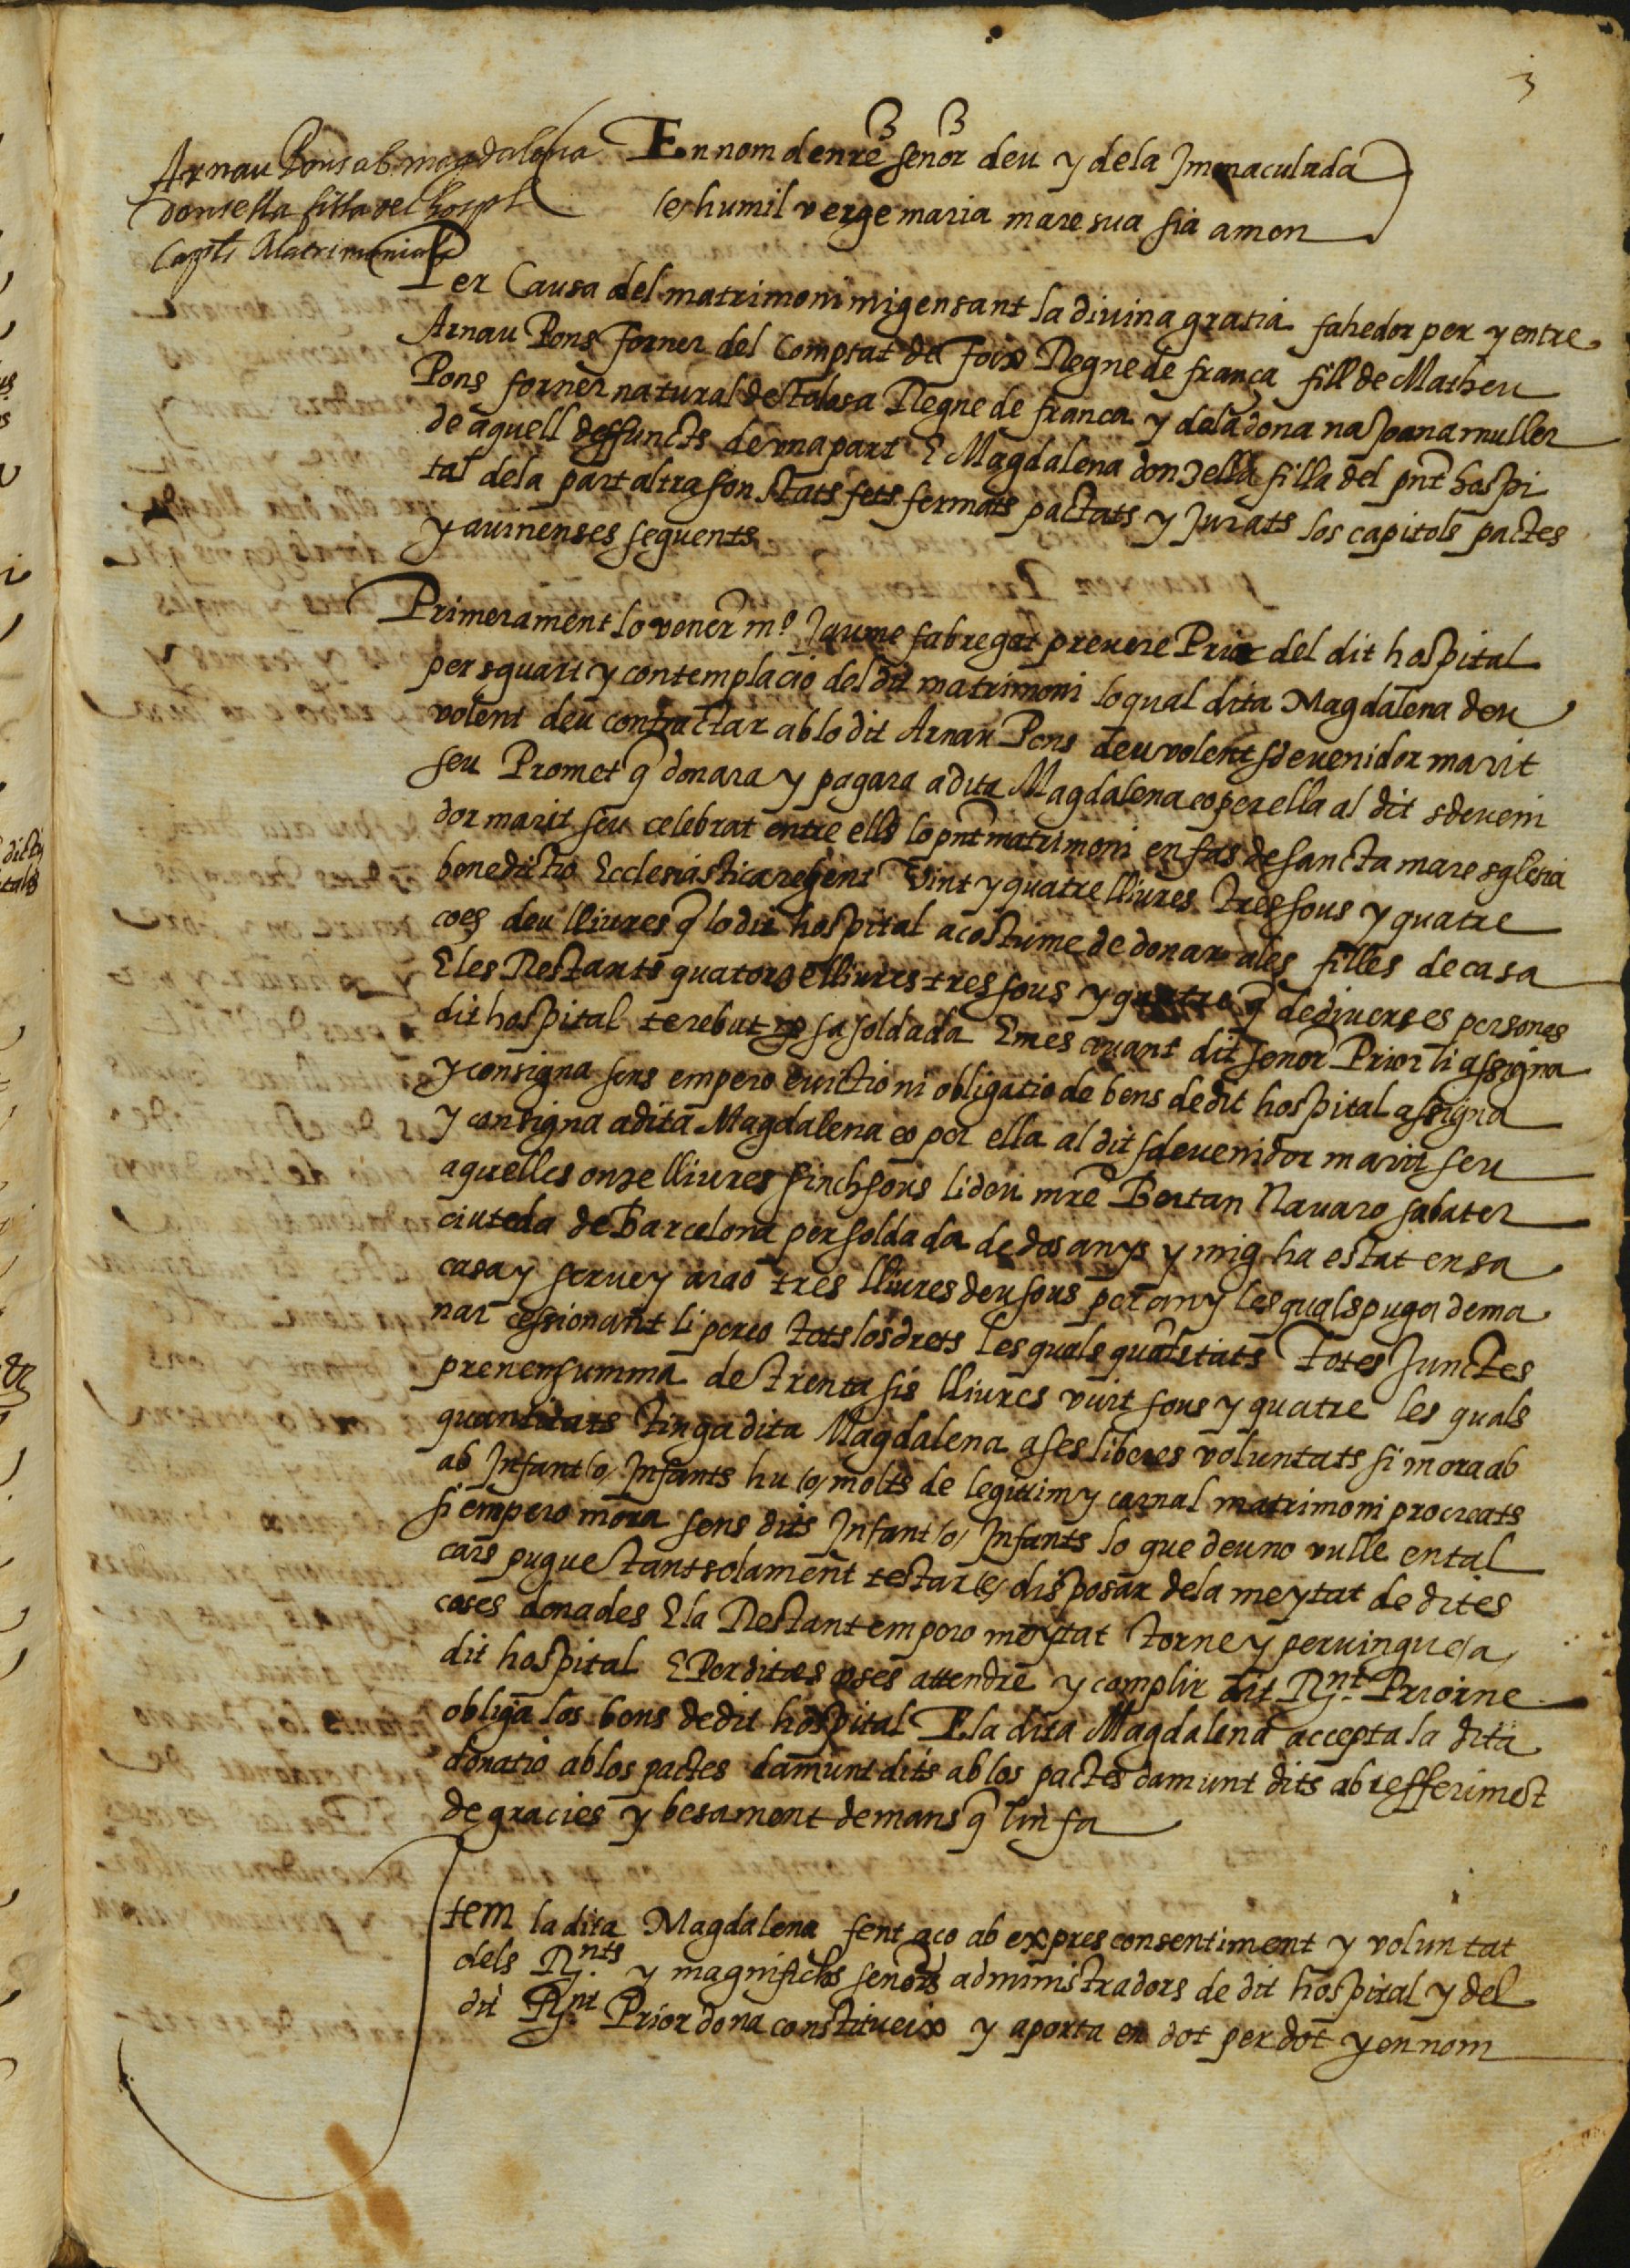 3
Arnau Pons ab magdalena
donsella filla del hospl
Caplls Matrimonials
En nom de nre señor deu y dela Jmmaculada
(e) humil verge maria mare sua sia amen
Per Causa del matrimoni migensant la diuina gratia fahedor per y entre
Arnau Pons forner del Comptat de Foix Regne de frança fill de Matheu
Pons forner natural de Tolosa Regne de franca y dela dona na Joana muller
de aquell deffuncts de vna part E Magdalena donzella filla del pnt hospi
tal dela part altra son stats fets fermats pactats y Jurats los capitols pactes
y auinenses seguents
Primerament lo vener mo Jaume fabregat preuere Prior del dit hospital
per sguart y contemplacio del dit matrimoni lo qual dita Magdalena deu
volent deu contractar ab lo dit Arnau Pons deu volent sdeuenidor marit
seu Promet q donara y pagara a dita Magdalena eo per ella al dit sdeueni
dor marit seu celebrat entre ells lo pnt matrimoni en fas de sancta mare sglesia
benedictio Ecclesiastica reben Vint y quatre lliures tres sous y quatre
coes deu lliures q lo dit hospital acostume de donar ales filles de casa
E les Restants quatorse lliures tres sous y quatre q de diuerses persones
dit hospital te rebut de sa soldada E mes auant dit señor Prior li assigna
y consigna sens empero euictio ni obligatio de bens de dit hospital assigna
y consigna a dita Magdalena eo per ella al dit sdeuenidor marit seu
aquelles onse lliures sinch sous li deu mre Bertan Nauaro sabater
ciuteda de Barcelona per soldada de dos anys y mig ha estat en sa
casa y seruey a rao tres lliures deu sous per any les quals puga dema
nar cessionant li pereo tots los drets les quals quatitats Totes Junctes
prenen summa de trenta sis lliures vuit sous y quatre les quals
quantitats tinga dita Magdalena a ses liberes voluntats si mora ab
ab Infant (o) Infants hu (o) molts de legitim y carnal matrimoni procreats
si empero mora sens dits Infant (o) Infants lo que deu no vulle en tal
cars pugue tantsolament testar (e) disposar dela meytat de dites
coses donades E la Restant empero meytat torne y peruingue (a)
dit hospital E Per dites coses attendre y complir dit Rnt Prior ne
obliga los bens de dit hospital E la dita Magdalena accepta la dita
donatio ab los pactes damunt dits ab los pactes damunt dits ab refferiment
de gracies y besament de mans q lin fa
Item la dita Magdalena fent aço ab expres consentiment y voluntat
dels Rnts y magnifichs señors administradors de dit hospital y del
dit Rnt Prior dona constitueix y aporta en dot per dot y en nom